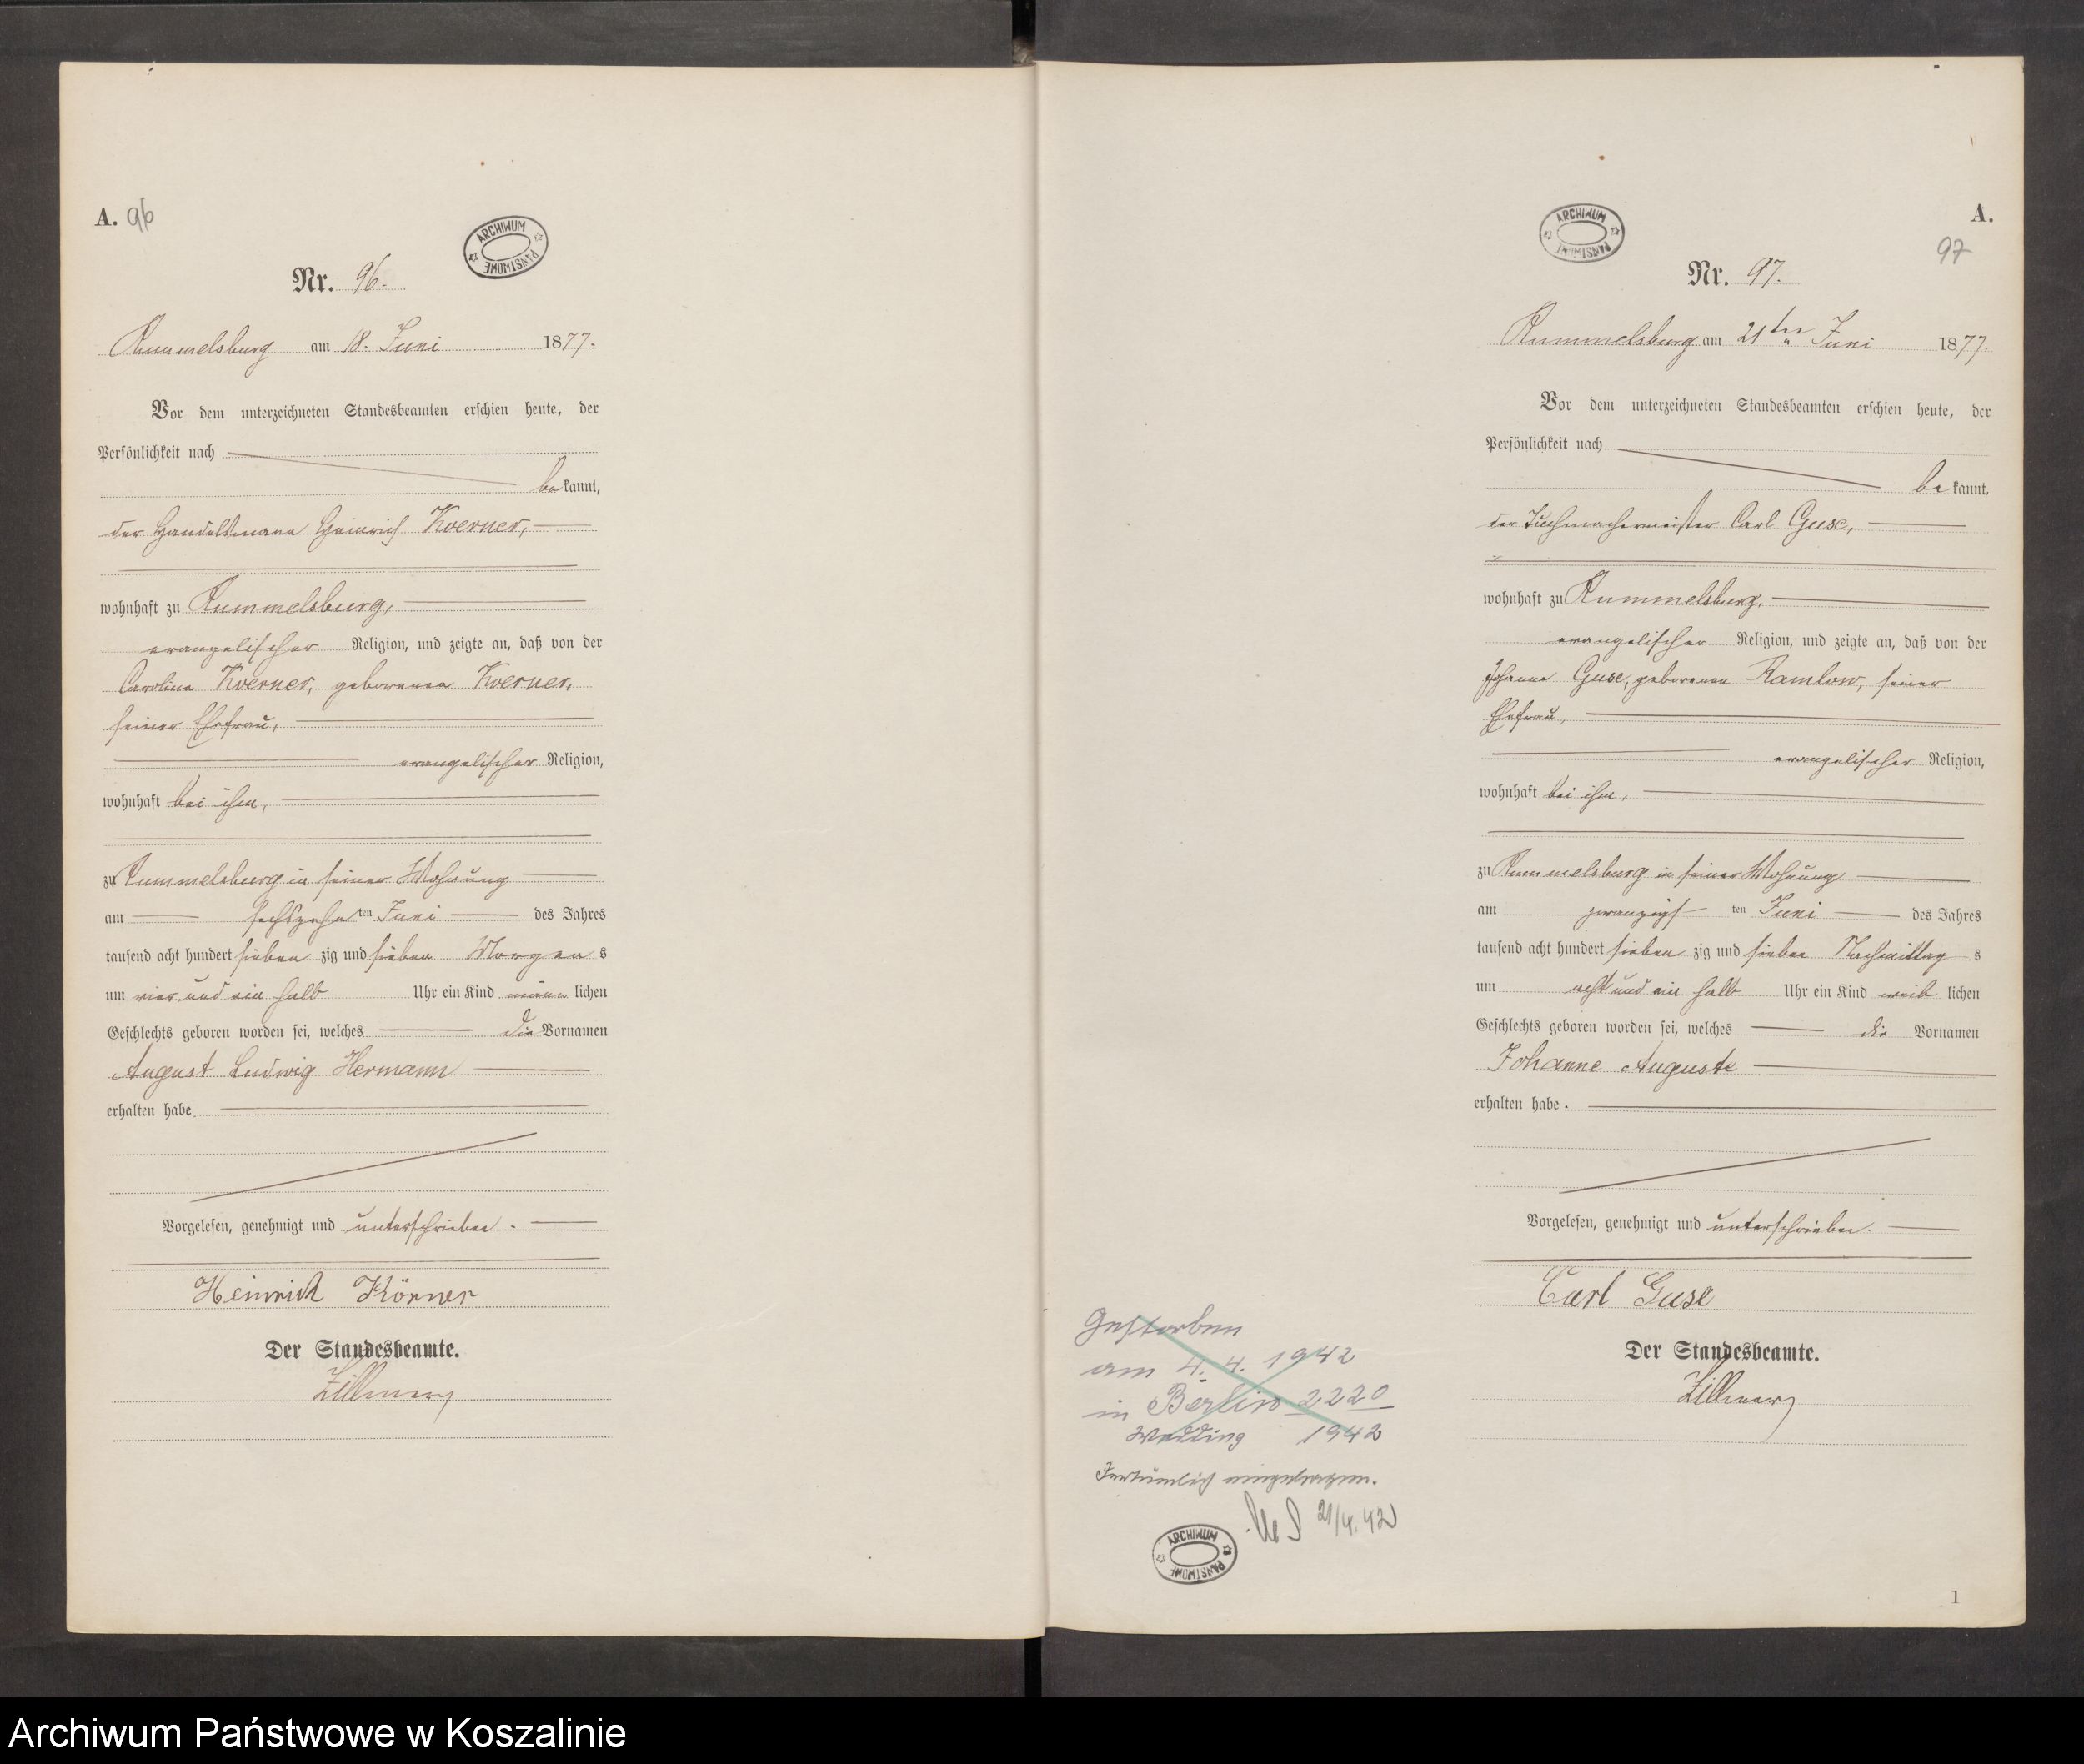 A. 96
ARCHIWUM PAŃSTWOWE
Nr. 96.
Rummelsburg am 18. Juni 1877.
Vor dem unterzeichneten Standesbeamten erschien heute, der
Persönlichkeit nach
bekannt,
der Handelsmann Heinrich Koerner,
wohnhaft zu Rummelsburg,
evangelischer Religion, und zeigte an, daß von der
Caroline Koerner, geborenen Koerner,
seiner Ehefrau,
evangelischer Religion,
wohnhaft bei ihm,
zu Rummelsburg in seiner Wohnung
am sechszehnten Juni des Jahres
tausend acht hundert siebenzig und sieben Morgens
um vier und ein halb Uhr ein Kind männlichen
Geschlechts geboren worden sei, welches die Vornamen
August Ludwig Hermann
erhalten habe
Vorgelesen, genehmigt und unterschrieben.
Heinrich Körner
Der Standesbeamte.
Zillmer
A.
97
ARCHIWUM PAŃSTWOWE
Nr. 97.
Rummelsburg am 21ten Juni 1877.
Vor dem unterzeichneten Standesbeamten erschien heute, der
Persönlichkeit nach
bekannt,
der Tuchmachermeister Carl Guse,
wohnhaft zu Rummelsburg,
evangelischer Religion, und zeigte an, daß von der
Johanne Guse, geborenen Ramlow, seiner
Ehefrau,
evangelischer Religion,
wohnhaft bei ihm,
zu Rummelsburg in seiner Wohnung
am zwanzigsten Juni des Jahres
tausend acht hundert siebenzig und sieben Nachmittags
um acht und ein halb Uhr ein Kind weiblichen
Geschlechts geboren worden sei, welches die Vornamen
Johanne Auguste
erhalten habe.
Vorgelesen, genehmigt und unterschrieben.
Carl Guse
Der Standesbeamte.
Zillmer
Gestorben
am 4. 4. 1942
in Berlin 2220
Wedding 1942
Irrtümlich eingetragen.
21/4. 42
ARCHIWUM PAŃSTWOWE
1
Archiwum Państwowe w Koszalinie